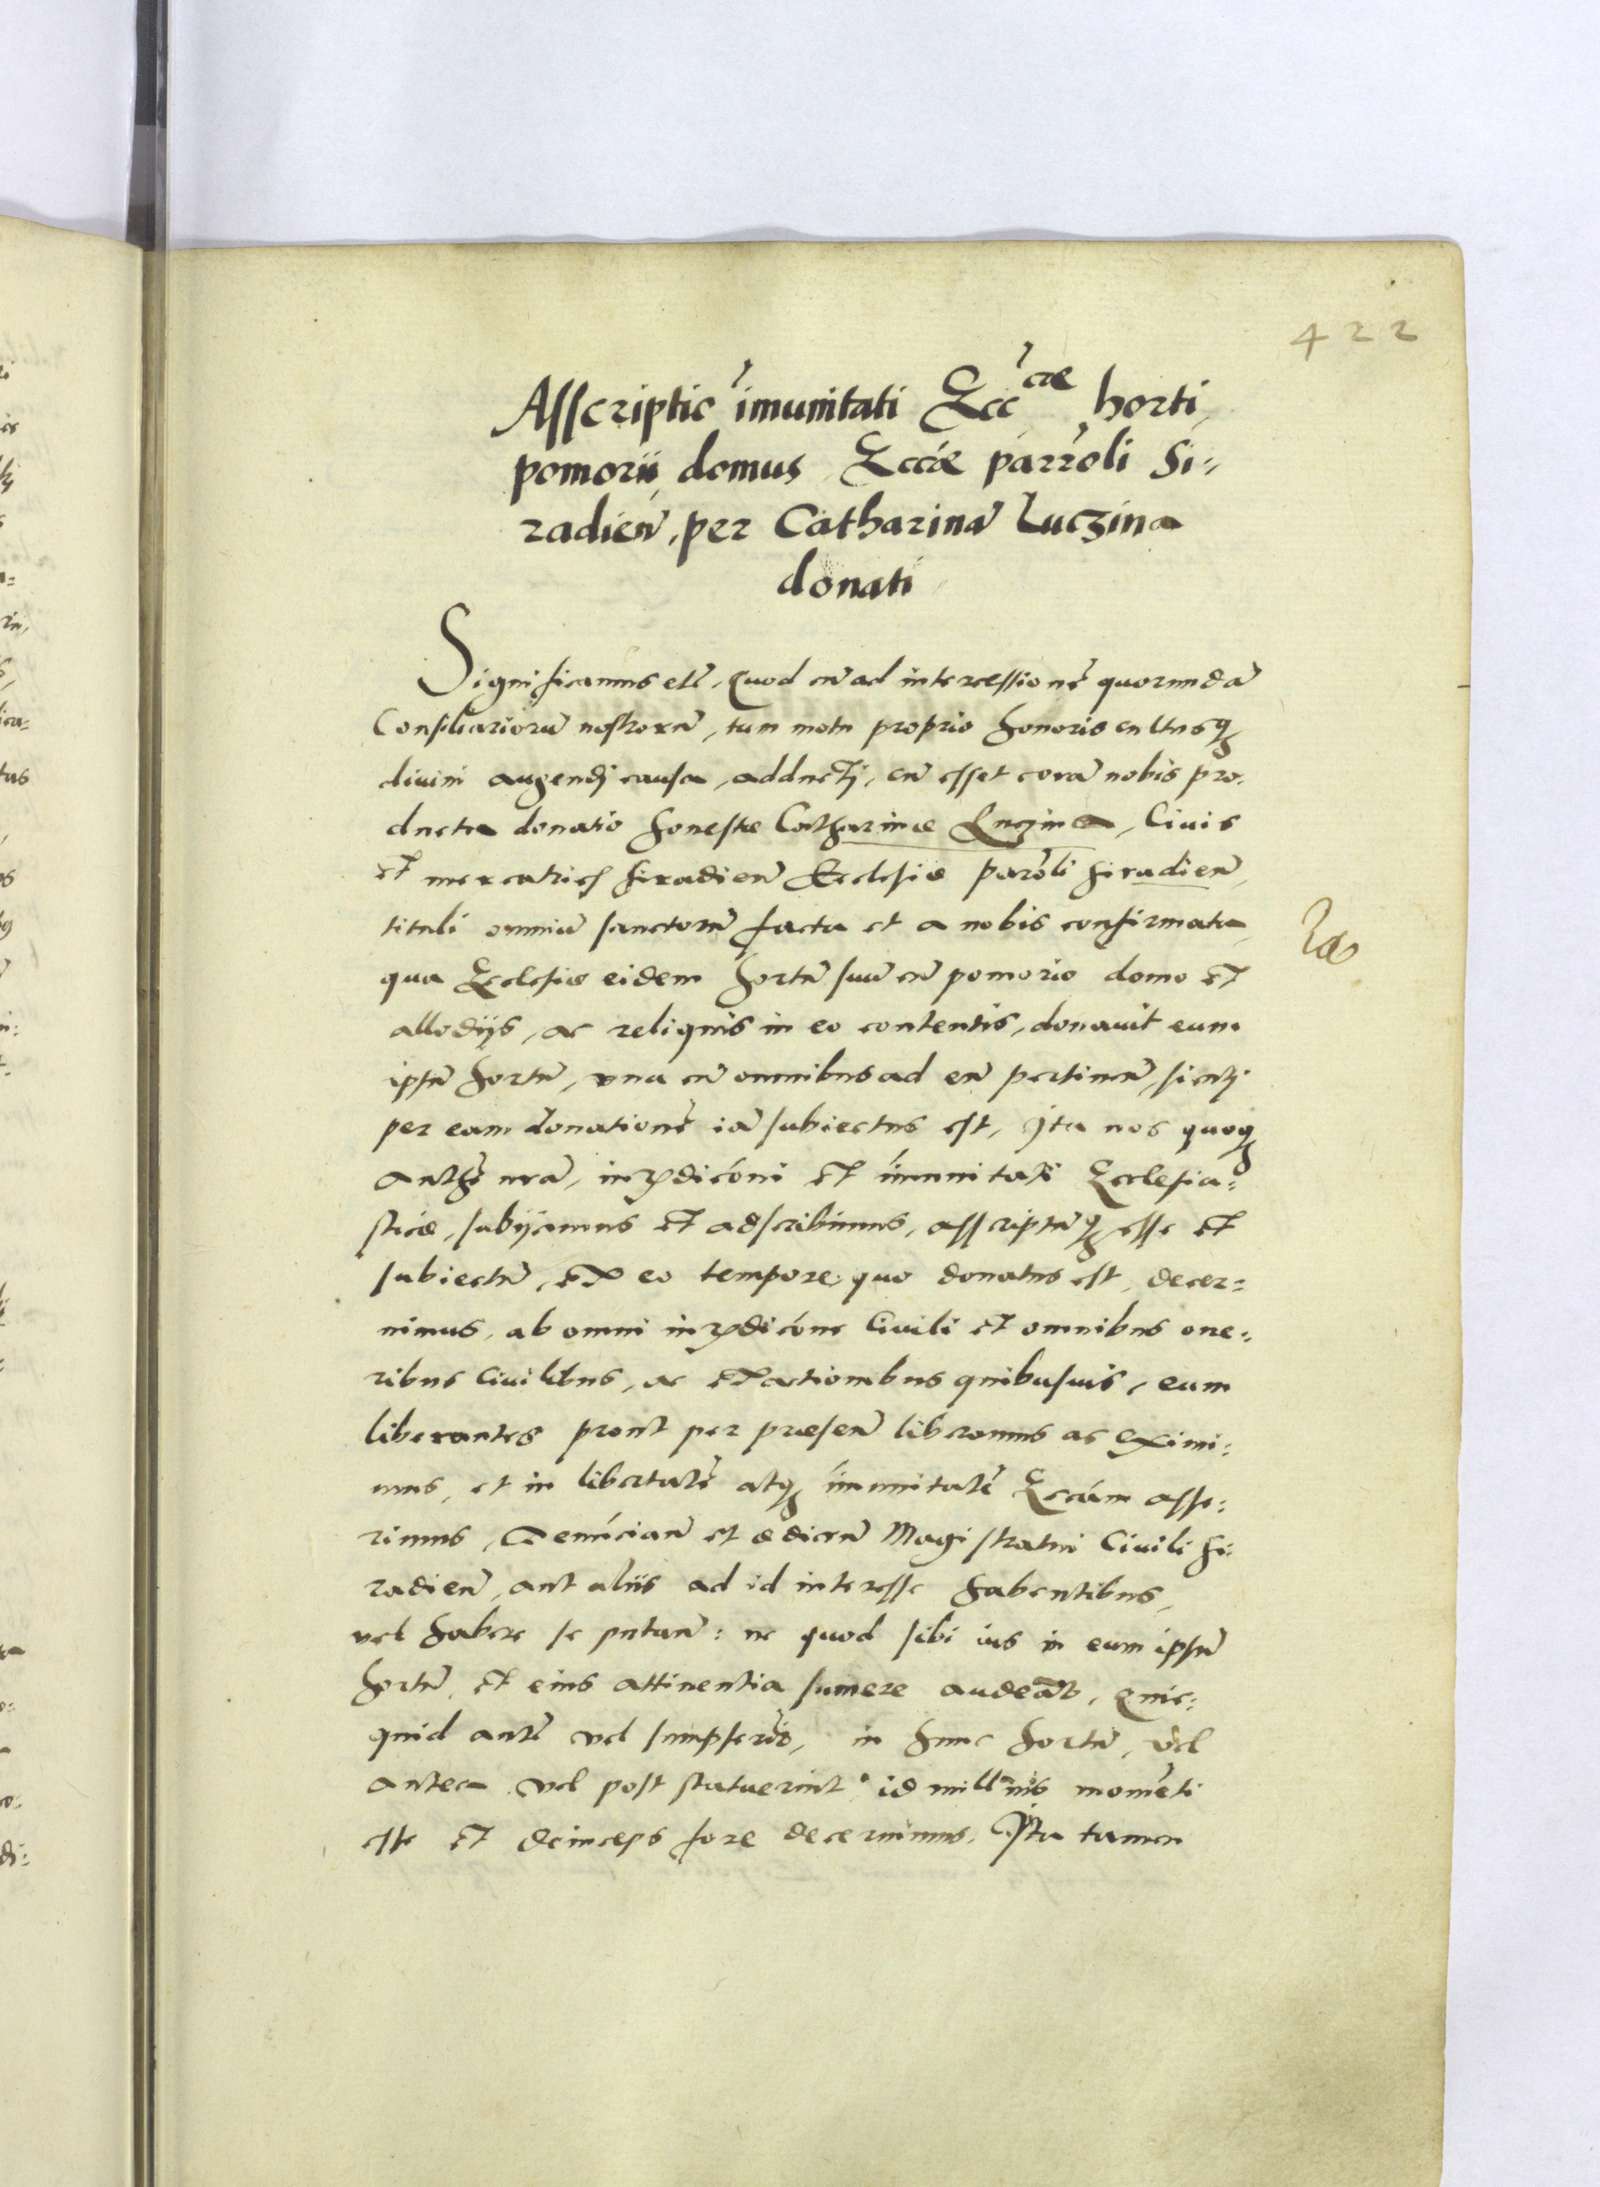 422
Asscriptio imunitati Eccae horti,
pomorii, domus, Eccae parroli Si=
radien̄, per Catharinā Luczina
donati
Significamus etc̄. Quod cū ad intercessionē quorundā
Consiliariorū nostrorū, tum motu proprio honoris cultusq
divini augendi causa, adducti, cū esset corā nobis pro=
ducta donatio honestae Catharinae Luczina, Civis
et mercatricis Siradien̄ Ecclesiae parōli Siradien̄,
tituli omniū sanctorū facta et a nobis confirmata,
qua Ecclesiae eidem hortū suū cū pomorio domo et
allodijs, ac reliquis in eo contentis, donavit eum
ipsū hortū, una cū omnibus ad eū pertinen̄, sicuti
per eam donationē iā subiectus est, Ita nos quoq
auth̄e nrā, iurydicōni et imunitati Ecclesia=
sticae, subijcimus et adscribimus, asscriptūq esse et
subiectū, ex eo tempore quo donatus est, decer=
nimus, ab omni iurydicōne Civili et omnibus one=
ribus Civilibus, ac exactionibus quibusuis, eum
liberantes prout per praesen̄ liberamus ac eximi=
mus, et in libertatē atq imunitatē Eccām asse=
rimus, Denūcian̄ et edicen̄ Magistratui Civili Si=
radien̄, aut aliis ad id interesse habentibus,
vel habere se putan̄: ne quod sibi ius in eum ipsū
hortū, et eius attinentia sumere audeāt, Quic=
quid autē vel sumpserīt, in hunc hortū, vel
antea vel post statuerint, id nullius momēti
esse et deinceps fore decernimus. Ita tamen